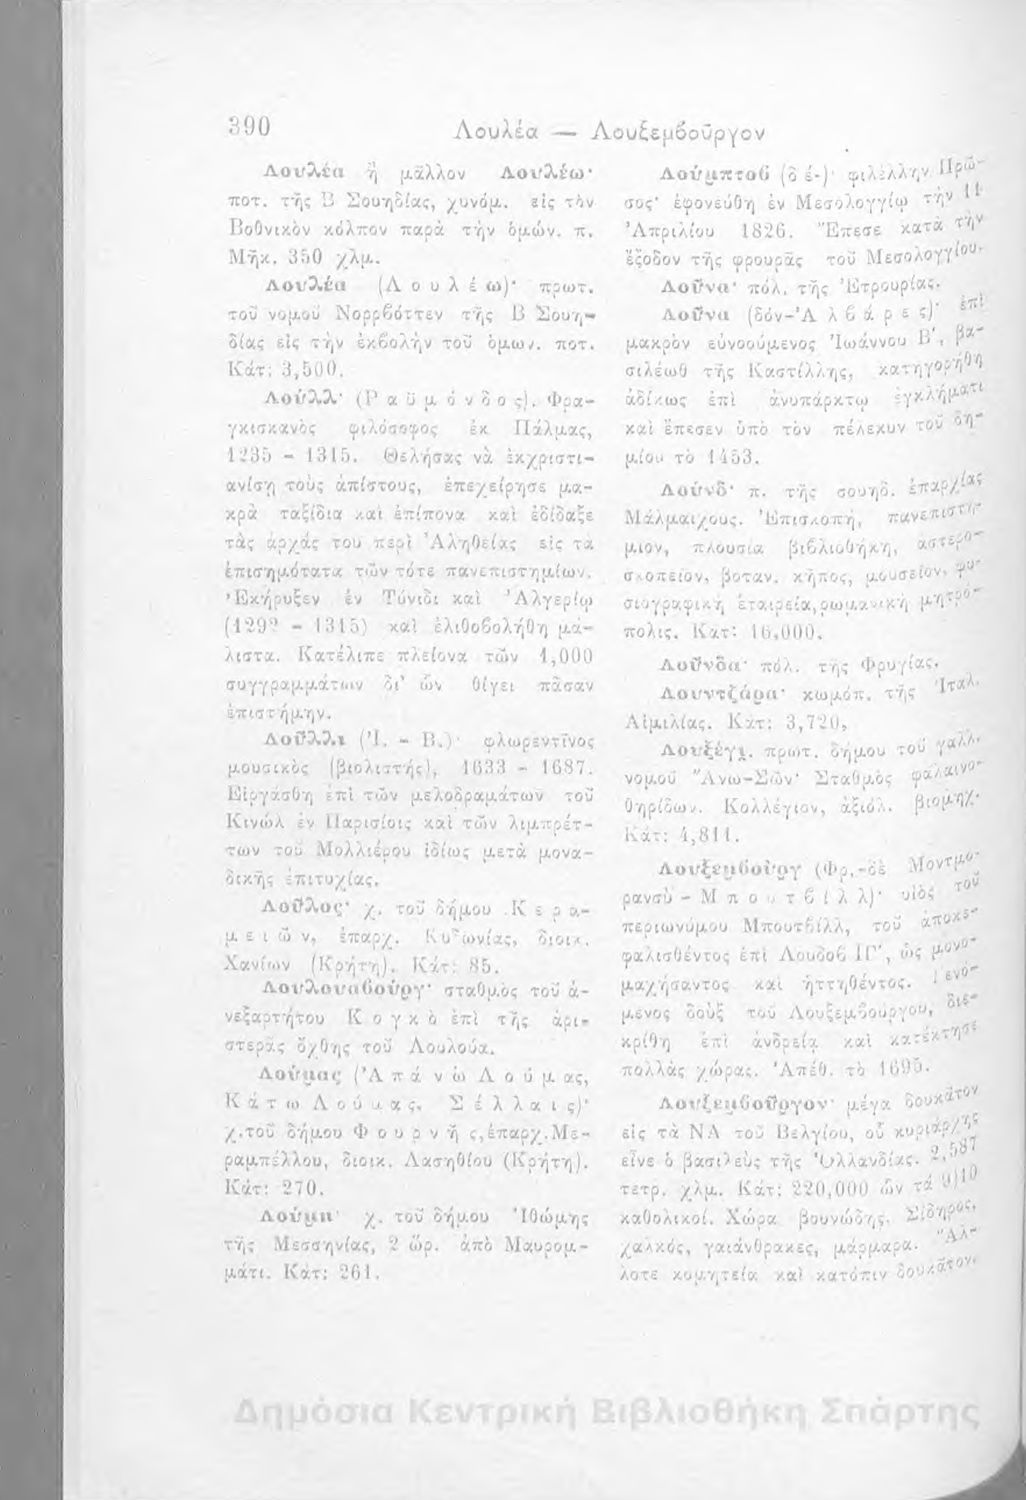 390
Λουλέα — Λουξεμβοῦργον
Λουλέα ἢ μᾶλλον Λουλέω·
ποτ. τῆς Β Σουηδίας, χυνόμ. εἰς τὸν
Βοθνικὸν κόλπον παρὰ τὴν ὁμών. π.
Μῆκ. 350 χλμ.
Λουλέα (Λουλέω)· πρωτ.
τοῦ νομοῦ Νορρβόττεν τῆς Β Σουη-
δίας εἰς τὴν ἐκβολὴν τοῦ ὁμων. ποτ.
Κάτ: 3,500.
Λούλλ· (Ραϋμόνδος). Φρα-
γκισκανὸς φιλόσοφος ἐκ Πάλμας,
1235 - 1315. Θελήσας νὰ ἐκχριστι-
ανίσῃ τοὺς ἀπίστους, ἐπεχείρησε μα-
κρὰ ταξίδια καὶ ἐπίπονα καὶ ἐδίδαξε
τὰς ἀρχάς του περὶ Ἀληθείας εἰς τὰ
ἐπισημότατα τῶν τότε πανεπιστημίων.
Ἐκήρυξεν ἐν Τύνιδι καὶ Ἀλγερίῳ
(1292 - 1315) καὶ ἐλιθοβολήθη μά-
λιστα. Κατέλιπε πλείονα τῶν 1,000
συγγραμμάτων δι’ ὧν θίγει πᾶσαν
ἐπιστήμην.
Λοῦλλι (Ἰ. - Β.)· φλωρεντῖνος
μουσικὸς (βιολιστής), 1633 - 1687.
Εἰργάσθη ἐπὶ τῶν μελοδραμάτων τοῦ
Κινὼλ ἐν Παρισίοις καὶ τῶν λιμπρέτ-
των τοῦ Μολλιέρου ἰδίως μετὰ μονα-
δικῆς ἐπιτυχίας.
Λοῦλος· χ. τοῦ δήμου Κερα-
μειῶν, ἐπαρχ. Κυδωνίας, διοικ.
Χανίων (Κρήτη). Κάτ: 85.
Λουλουαβούργ· σταθμὸς τοῦ ἀ-
νεξαρτήτου Κογκὸ ἐπὶ τῆς ἀρι-
στερᾶς ὄχθης τοῦ Λουλούα.
Λούμας (Ἀπάνω Λούμας,
Κάτω Λούμας, Σέλλαις)·
χ.τοῦ δήμου Φουρνῆς,ἐπαρχ.Με-
ραμπέλλου, διοικ. Λασηθίου (Κρήτη).
Κάτ: 270.
Λούμπ· χ. τοῦ δήμου Ἰθώμης
τῆς Μεσσηνίας, 2 ὥρ. ἀπὸ Μαυρομ-
μάτι. Κάτ: 261.
Λούμπτοβ (δέ-)· φιλέλλην Πρῶ-
σος· ἐφονεύθη ἐν Μεσολογγίῳ τὴν 11
Ἀπριλίου 1826. Ἔπεσε κατὰ τὴν
ἔξοδον τῆς φρουρᾶς τοῦ Μεσολογγίου.
Λοῦνα· πόλ. τῆς Ἐτρουρίας.
Λοῦνα (δόν-Ἀλβάρες)· ἐπὶ
μακρὸν εὐνοούμενος Ἰωάννου Β΄, βα-
σιλέως τῆς Καστίλλης, κατηγορήθη
ἀδίκως ἐπὶ ἀνυπάρκτῳ ἐγκλήματι
καὶ ἔπεσεν ὑπὸ τὸν πέλεκυν τοῦ δη-
μίου τὸ 1453.
Λούνδ· π. τῆς σουηδ. ἐπαρχίας
Μάλμαιχους. Ἐπισκοπή, πανεπιστή-
μιον, πλουσία βιβλιοθήκη, ἀστερο-
σκοπεῖον, βοταν. κῆπος, μουσεῖον, φυ-
σιογραφικὴ ἑταιρεία,ρωμανικὴ μητρό-
πολις. Κάτ: 16,000.
Λοῦνδα· πόλ. τῆς Φρυγίας.
Λουντζάρα· κωμόπ. τῆς Ἰταλ.
Αἰμιλίας. Κάτ: 3,720,
Λουξέγι. πρωτ. δήμου τοῦ γαλλ.
νομοῦ Ἄνω-Σῶν· Σταθμὸς φαλαινο-
θηρίδων. Κολλέγιον, ἀξιόλ. βιομηχ.
Κάτ: 4,811.
Λουξεμβούργ (Φρ.-δὲ Μοντμο-
ρανσὺ - Μπουτβίλλ)· υἱὸς τοῦ
περιωνύμου Μπουτβίλλ, τοῦ ἀποκε-
φαλισθέντος ἐπὶ Λουδοβ ΙΓ΄, ὡς μονο-
μαχήσαντος καὶ ἡττηθέντος. Γενό-
μενος δοὺξ τοῦ Λουξεμβούργου, διε-
κρίθη ἐπὶ ἀνδρείᾳ καὶ κατέκτησε
πολλὰς χώρας. Ἀπέθ. τὸ 1695.
Λουξεμβοῦργον· μέγα δουκᾶτον
εἰς τὰ ΝΑ τοῦ Βελγίου, οὗ κυριάρχης
εἶνε ὁ βασιλεὺς τῆς Ὁλλανδίας. 2,587
τετρ. χλμ. Κάτ: 220,000 ὧν τὰ 9)10
καθολικοί. Χώρα βουνώδης. Σίδηρος,
χαλκός, γαιάνθρακες, μάρμαρα. Ἄλ-
λοτε κομητεία καὶ κατόπιν δουκᾶτον.
Δημόσια Κεντρική Βιβλιοθήκη Σπάρτης